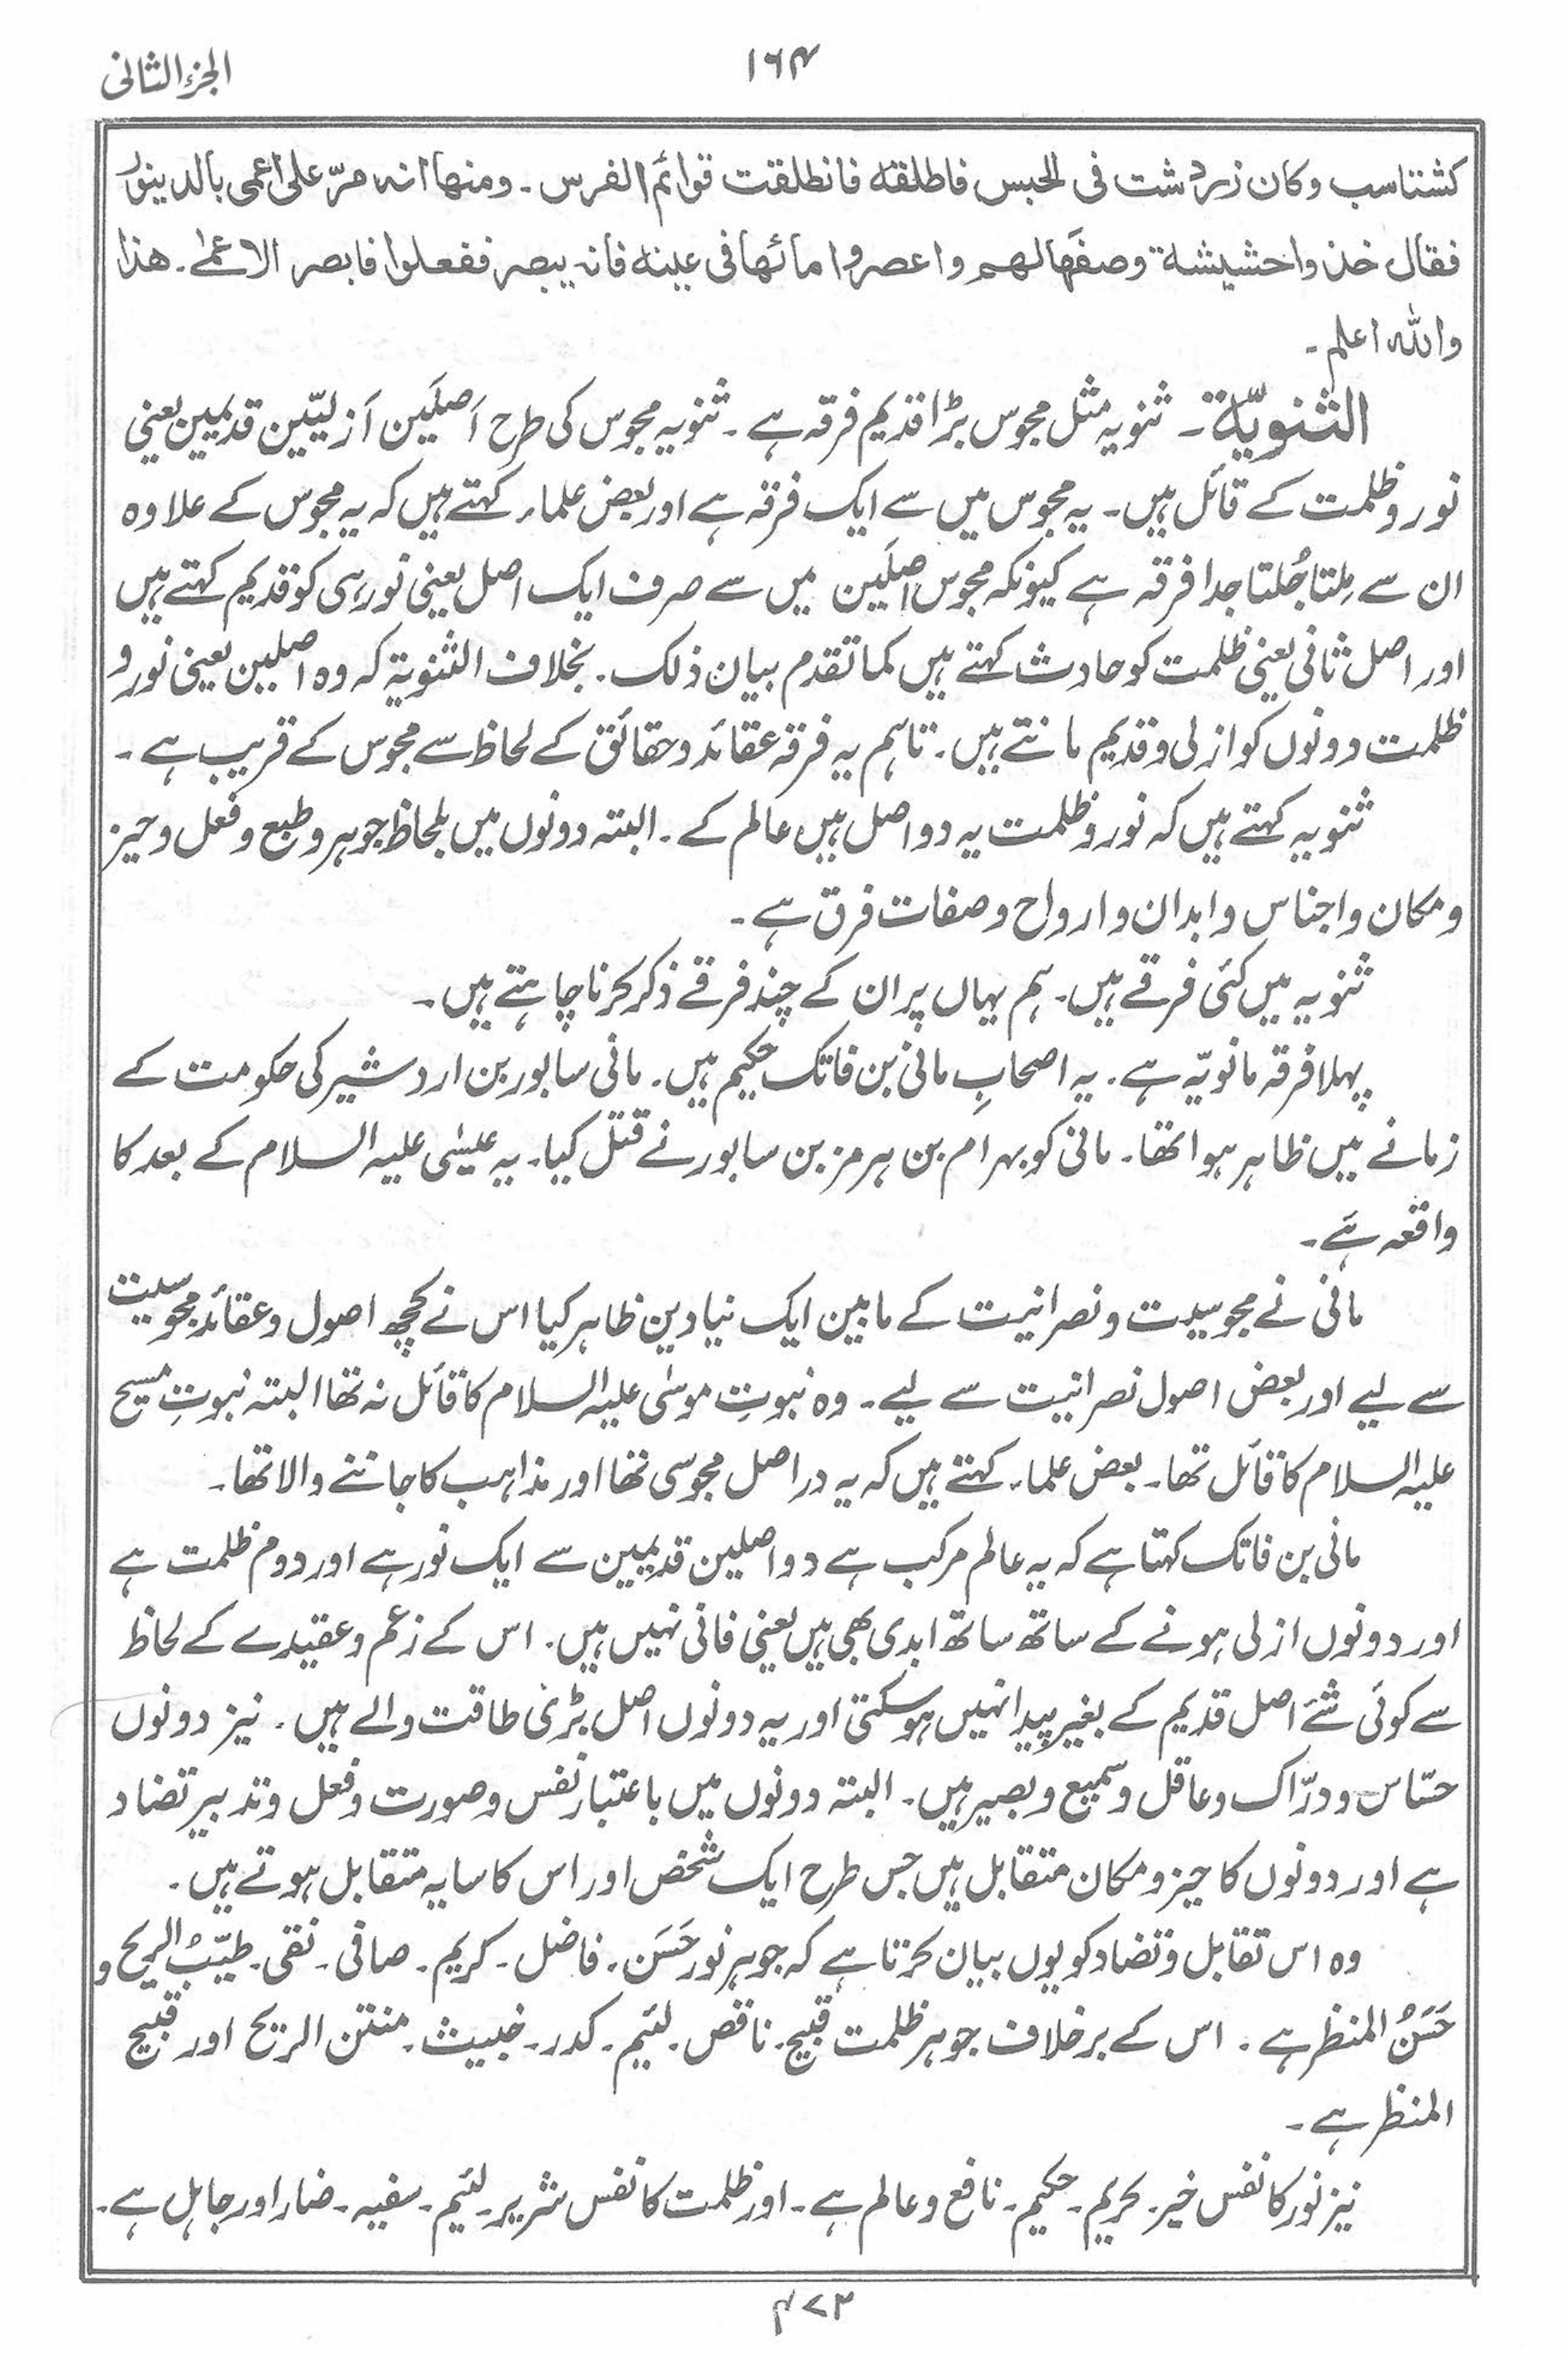 الجزء الثانی
۱۶۴
کشتاسب وکان زردشت فی الحبس فاطلقه فانطلقت قوائم الفرس۔ ومنها انه مرّ علی اعمی بالدینور
فقال خذوا حشیشة وصفها لهم واعصروا مائها فی عینه فانه یبصر ففعلوا فابصر الاعمٰی۔ هذا
واللّٰه اعلم۔
الثنویّة۔ ثنویہ مثل مجوس بڑا قدیم فرقہ ہے۔ ثنویہ مجوس کی طرح اَصلَین اَزلیّین قدیمین یعنی
نور وظلمت کے قائل ہیں۔ یہ مجوس میں سے ایک فرقہ ہے اور بعض علماء کہتے ہیں کہ یہ مجوس کے علاوہ
ان سے مِلتا جُلتا جدا فرقہ ہے کیونکہ مجوس اصلَین میں سے صرف ایک اصل یعنی نور ہی کو قدیم کہتے ہیں
اور اصل ثانی یعنی ظلمت کو حادث کہتے ہیں کما تقدم بیان ذلک۔ بخلاف الثنویۃ کہ وہ اصلین یعنی نور و
ظلمت دونوں کو ازلی وقدیم مانتے ہیں۔ تاہم یہ فرقہ عقائد وحقائق کے لحاظ سے مجوس کے قریب ہے۔
ثنویہ کہتے ہیں کہ نور وظلمت یہ دو اصل ہیں عالم کے۔ البتہ دونوں میں بلحاظ جوہر وطبع وفعل وحیز
ومکان واجناس وابدان وارواح وصفات فرق ہے۔
ثنویہ میں کئی فرقے ہیں۔ ہم یہاں پر ان کے چند فرقے ذکر کرنا چاہتے ہیں۔
پہلا فرقہ مانویّہ ہے۔ یہ اصحابِ مانی بن فاتک حکیم ہیں۔ مانی سابور بن اردشیر کی حکومت کے
زمانے میں ظاہر ہوا تھا۔ مانی کو بہرام بن ہرمز بن سابور نے قتل کیا۔ یہ عیسٰی علیہ السلام کے بعد کا
واقعہ ہَے۔
مانی نے مجوسیت ونصرانیت کے مابین ایک نیا دین ظاہر کیا اس نے کچھ اصول وعقائد مجوسیت
سے لیے اور بعض اصول نصرانیت سے لیے۔ وہ نبوتِ موسٰی علیہ السلام کا قائل نہ تھا البتہ نبوتِ مسیح
علیہ السلام کا قائل تھا۔ بعض علماء کہتے ہیں کہ یہ دراصل مجوسی تھا اور مذاہب کا جاننے والا تھا۔
مانی بن فاتک کہتا ہے کہ یہ عالم مرکب ہے دو اصلین قدیمین سے ایک نور ہے اور دوم ظلمت ہے
اور دونوں ازلی ہونے کے ساتھ ساتھ ابدی بھی ہیں یعنی فانی نہیں ہیں۔ اس کے زعم وعقیدے کے لحاظ
سے کوئی شئے اصل قدیم کے بغیر پیدا نہیں ہو سکتی اور یہ دونوں اصل بڑی طاقت والے ہیں۔ نیز دونوں
حسّاس ودرّاک وعاقل وسمیع وبصیر ہیں۔ البتہ دونوں میں باعتبار نفس وصورت وفعل وتدبیر تضاد
ہے اور دونوں کا حیز ومکان متقابل ہیں جس طرح ایک شخص اور اس کا سایہ متقابل ہوتے ہیں۔
وہ اس تقابل وتضاد کو یوں بیان کرتا ہے کہ جوہر نور حَسَن۔ فاضل۔ کریم۔ صافی۔ نقی۔ طیّبُ الریح و
حَسَنُ المنظر ہے۔ اس کے برخلاف جوہر ظلمت قبیح۔ ناقص۔ لئیم۔ کدر۔ خبیث۔ منتن الریح اور قبیح
المنظر ہے۔
نیز نور کا نفس خیر۔ کریم۔ حکیم۔ نافع وعالم ہے۔ اور ظلمت کا نفس شریر۔ لئیم۔ سفیہ۔ ضار اور جاہل ہے۔